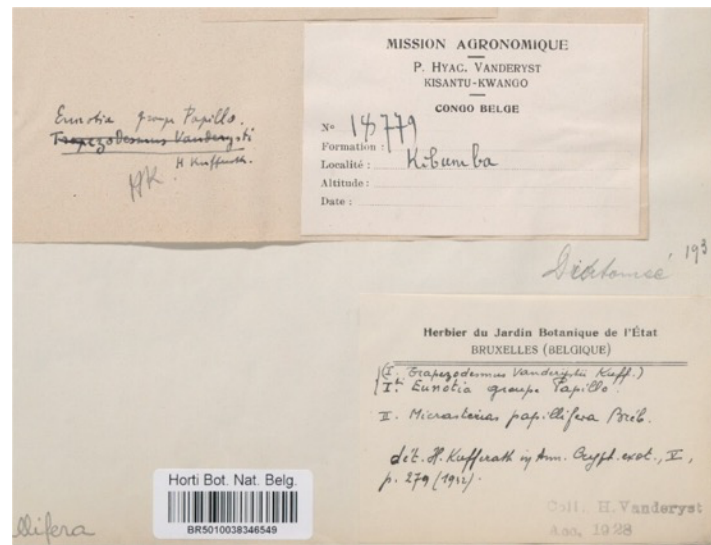 Eunotia groupe Papillo.
Trapezodesmus Vanderysti
H Kufferath.
HK
MISSION AGRONOMIQUE
P. HYAC. VANDERYST
KISANTU-KWANGO
CONGO BELGE
No 18779
Formation :
Localité : Kibumba
Altitude :
Date :
Diatomée 193
Herbier du Jardin Botanique de l'État
BRUXELLES (BELGIQUE)
(I. Trapezodesmus Vanderystii Kuff.)
Eunotia groupe Papillo.
II. Micrasterias papillifera Bréb.
dét. H. Kufferath in Ann. Crypt. exot., V,
p. 279 (1932).
Coll. H. Vanderyst
Acq. 1928
Horti Bot. Nat. Belg.
BR5010038346549
llifera